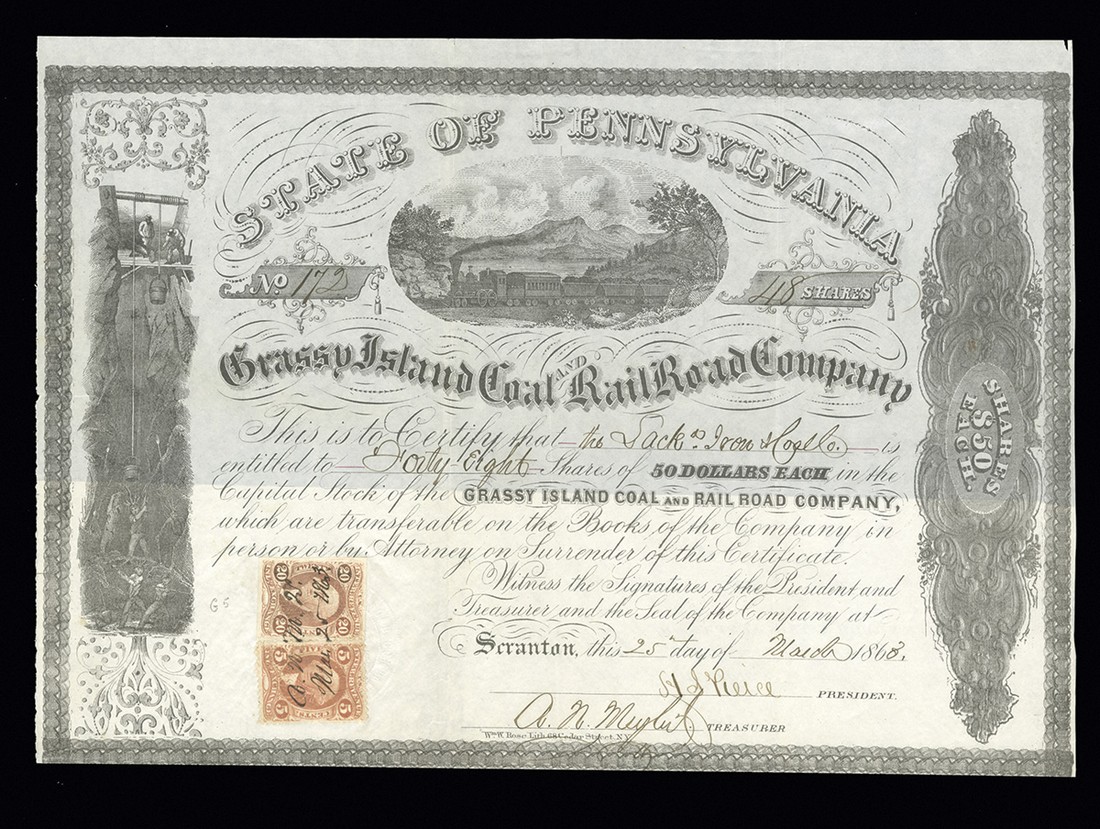 STATE OF PENNSYLVANIA
No 172
48 SHARES
Grassy Island Coal AND Rail Road Company
This is to Certify that the Lack a Iron & Coal Co is
entitled to Forty-Eight Shares of 50 DOLLARS EACH in the
Capital Stock of the GRASSY ISLAND COAL AND RAIL ROAD COMPANY,
which are transferable on the Books of the Company in
person or by Attorney on Surrender of this Certificate.
Witness the Signatures of the President and
Treasurer and the Seal of the Company at
Scranton, this 25 day of March 1863.
PRESIDENT.
TREASURER
Wm. W. Rose. Lith. 68 Cedar Street. N.Y.
SHARES
$50
EACH.
20 20
20 20
5 5
G5